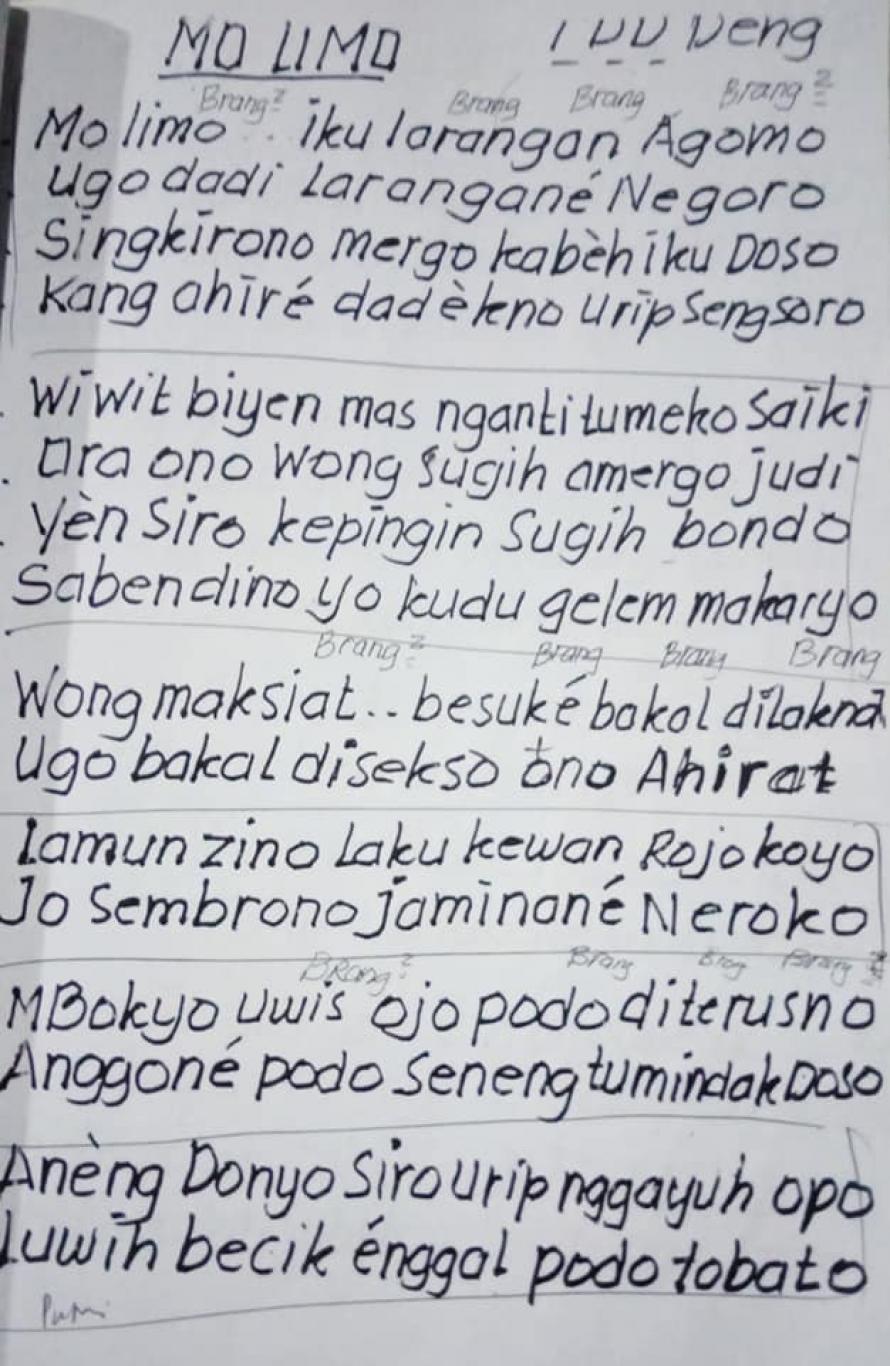 MO LIMO
Deng
Brang 2 Brang Brang Brang 2
Mo limo .. iku larangan Agomo
Ugo dadi larangané Negoro
Singkirono mergo kabèh iku Doso
Kang ahiré dadèkno urip sengsoro
Wiwit biyen mas nganti tumeko saiki
Ora ono wong sugih amergo judi
Yèn siro kepingin sugih bondo
Saben dino yo kudu gelem makaryo
Brang 2 Brang Brang Brang
Wong maksiat.. besuké bakal dilaknat
Ugo bakal disekso ono Ahirat
Lamun zino laku kewan Rojo koyo
Jo sembrono jaminané Neroko
BRang 2 Brang Brang Brang 2
MBokyo uwis ojo podo diterusno
Anggoné podo seneng tumindak Doso
Anèng Donyo siro urip nggayuh opo
Luwih becik énggal podo tobato